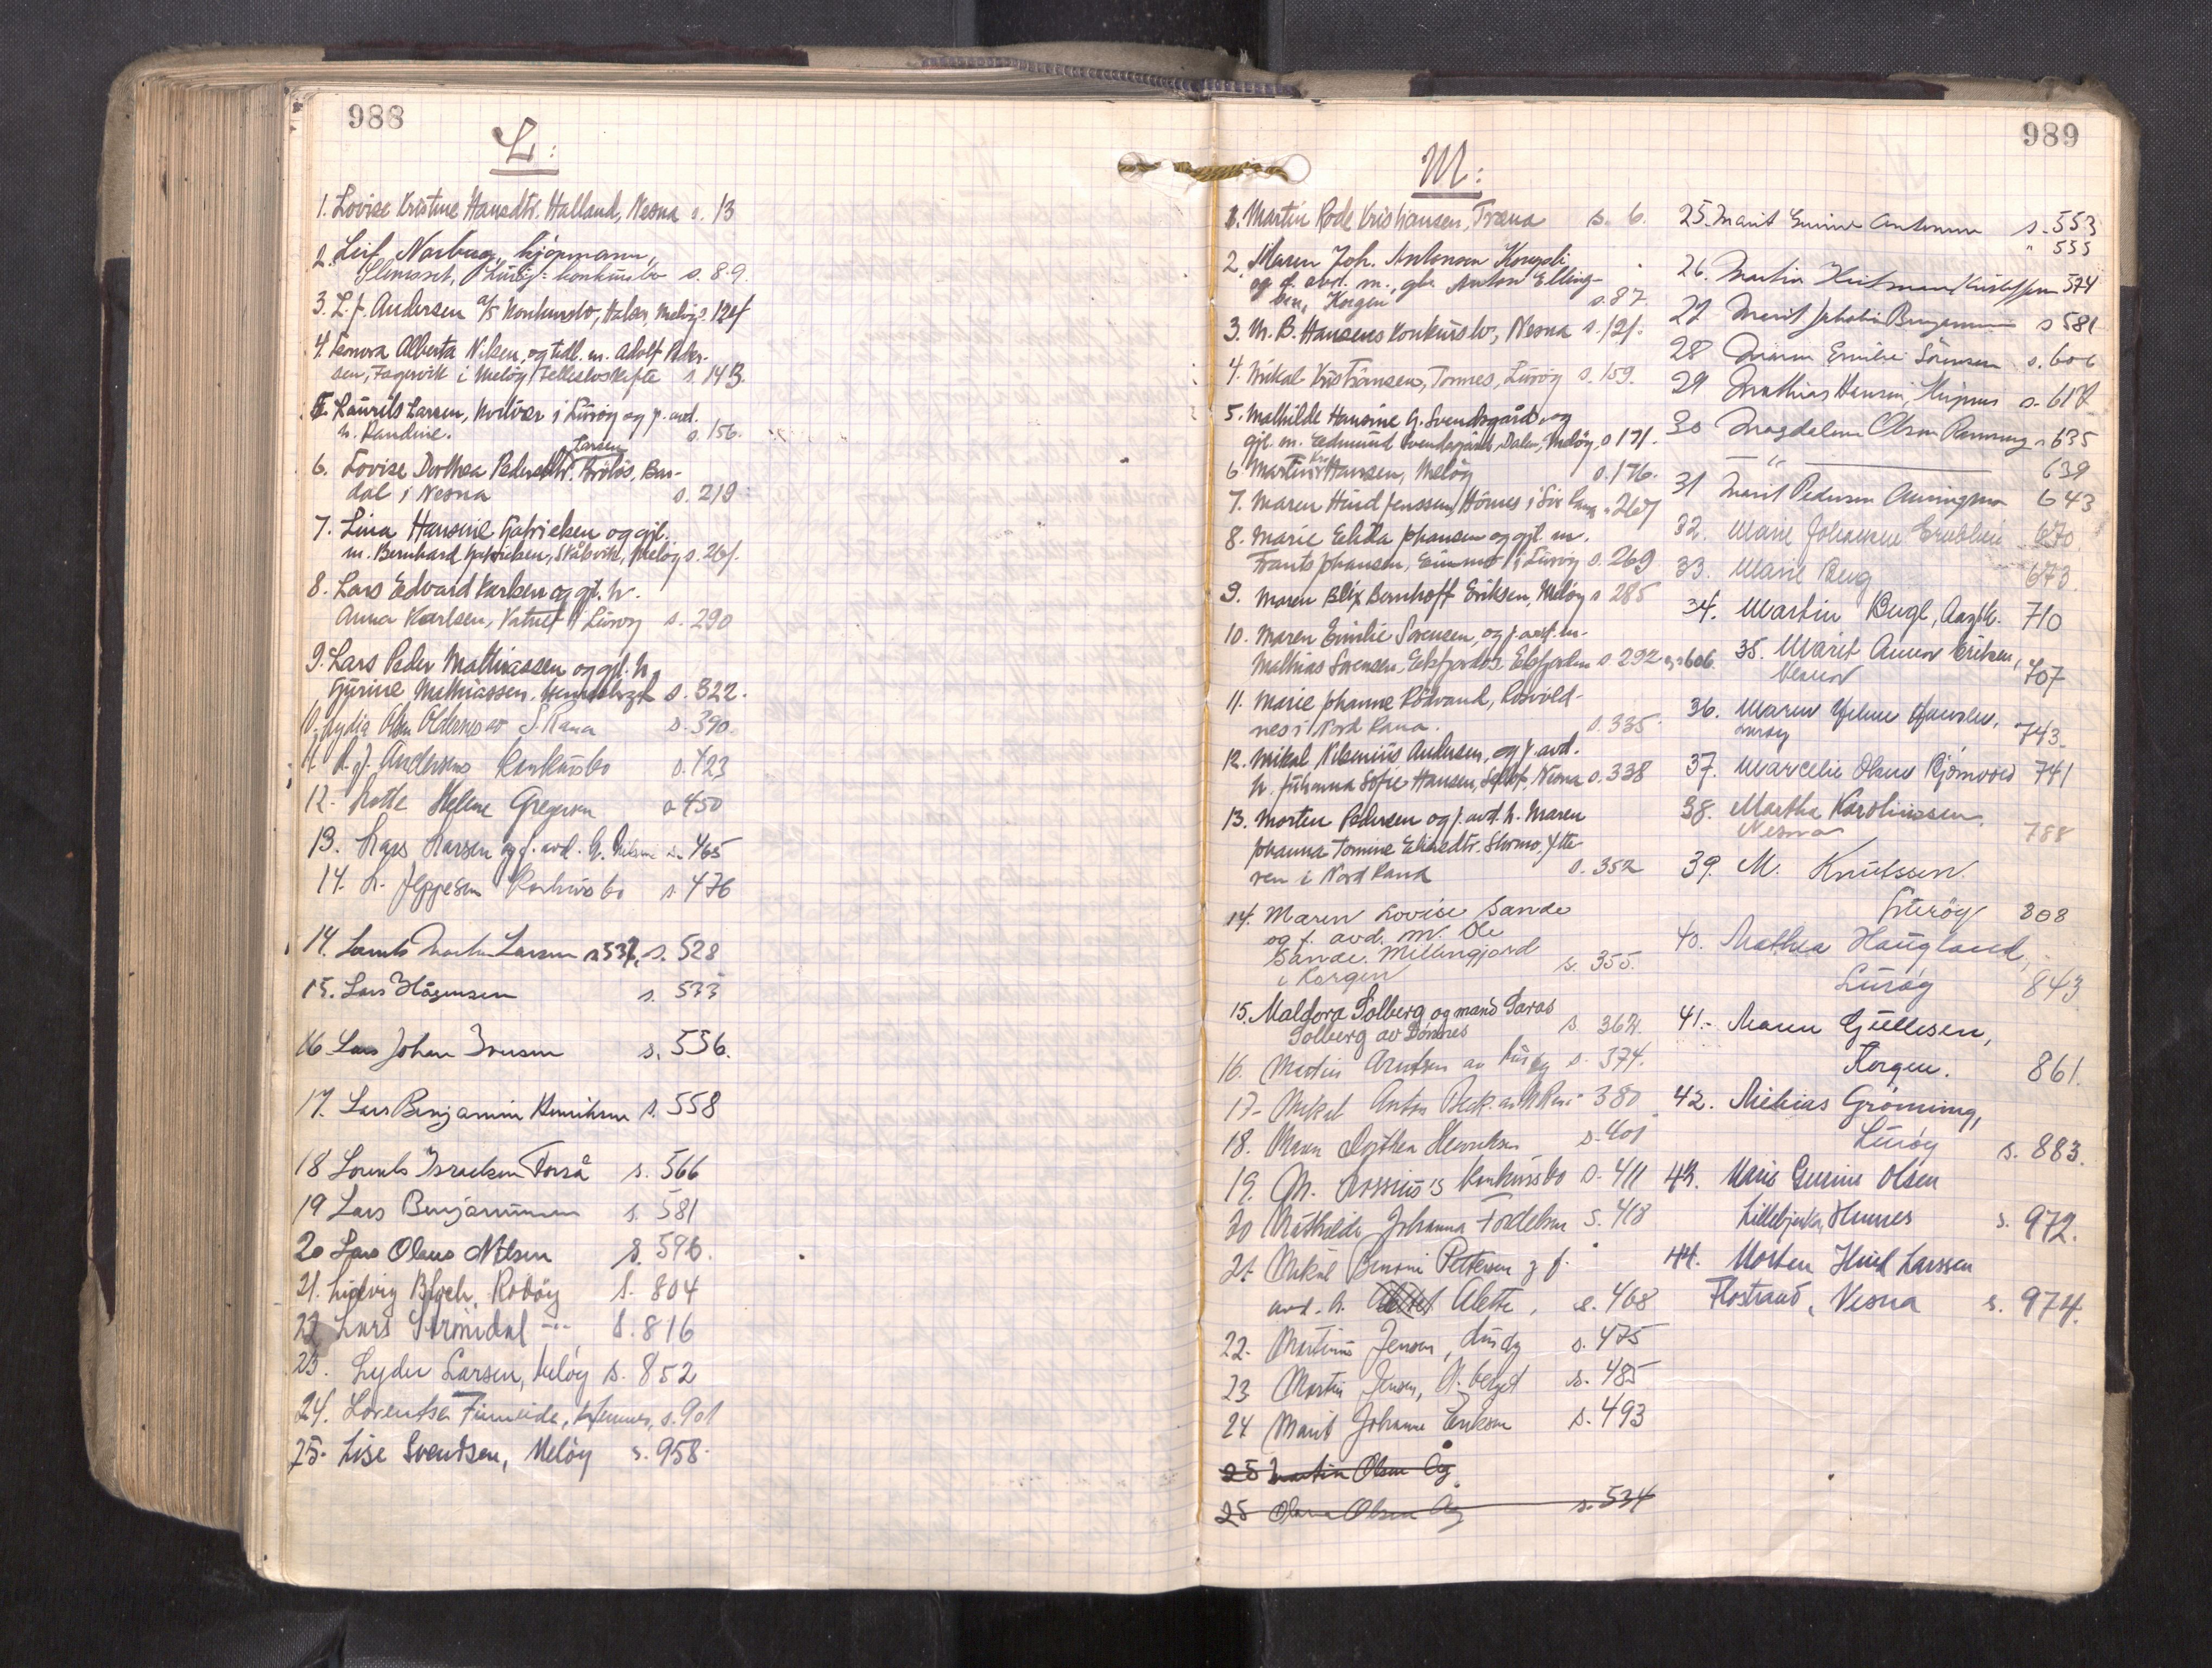 988
L:
1. Lovise Kristine Hansdtr. Halland, Nesna s. 13
2. Leif Norberg, kjøpmann,
Sleneset, Lurøy: konkursbo s. 89.
3. L. J. Andersen a/s konkursbo, Halsa, Meløy s. 124
4. Leonora Alberta Nilsen, og tidl. m. Adolf Peder-
sen, Fagervik i Meløy, Fellesboskifte s. 143.
5. Laurits Larsen, Kvitvær i Lurøy og f. avd.
h. Randine. s. 156.
6. Lovise Dorthea Pedersdtr. Larsen, Bar-
dal i Nesna s. 219
7. Lina Hansine Gabrielsen og gjl.
m. Bernhard Gabrielsen, Skålsvik, Meløy s. 261.
8. Lars Edvard Karlsen og gjl. h.
Anna Karlsen, Vatnet i Lurøy s. 290
9. Lars Peder Mathiassen og gjl. h.
Gurine Mathiassen, s. 322.
10. Lydia Olsen Oldernes av S. Rana s. 390.
11. L. J. Andersens Konkursbo s. 423
12. Lotte Helene Gregersen s. 450
13. Lars Larsen og f. avd. h. s. 465
14. L. Jeppesen Konkursbo s. 476
14. Lorents Martin Larsen s. 531, s. 528
15. Lars Hågensen s. 533
16 Lars Johan Iversen s. 556.
17. Lars Benjamin Henriksen s. 558
18 Lorents Israelsen Forså s. 566
19 Lars Benjaminsen s. 581
20 Lars Olaus Nilsen s. 596.
21. Ludvig Bloch, Rødøy s. 804
22 Lars Strømdal -"- s. 816
23. Lyder Larsen, Meløy s. 852
24. Lorentse Finneide, Hemnes, s. 901
25. Lise Svendsen, Meløy s. 958.
989
M:
1. Martin Rode Kristiansen, Træna s. 6.
2. Maren Joh. Antonsen Kongsli
og f. avd. m., gbr Anton Elling-
sen, Korgen s. 87.
3. M. B. Hansens konkursbo, Nesna s. 121.
4. Mikal Kristiansen, Tonnes, Lurøy s. 159.
5. Mathilde Hansine G. Svendsgård og
gjl. m. Edmund Svendsgård, Dalen, Meløy, s. 171.
6 Martin Kr. Hansen, Meløy s. 176.
7. Maren Hind Jenssen, Hornes i Sør Rana s. 267
8. Marie Elida Johansen og gjl. m.
Frants Johansen, i Lurøy s. 269
9. Maren Blix Bernhoff Eriksen, Meløy s. 285
10. Maren Emilie Sørensen, og f. avd. m.
Mathias Sørensen, Elsfjorden s. 292 og s. 606.
11. Marie Johanne Rødvand, Røsvold-
nes i Nord Rana. s. 335.
12. Mikal Nikenius Andersen, og f. avd.
h. Juhanna Sofie Hansen, Nesna s. 338
13. Morten Pedersen og f. avd. h. Maren
Johanna Tomine Eliasdtr. Skromo, Ytte-
ren i Nord Rana s. 352
14. Maren Lovise Sande
og f. avd. m. Ole
Sande. Millingjord
i Korgen s. 355.
15. Maldora Solberg og mand Saras
Solberg av Dønnes s. 364.
16. Martin Arntsen av Lurøy s. 374.
17- Mikal Anton Beck av N. Rana 380
18. Maren Dorthea Henriksen s. 401
19. M. Rossius's Konkursbo s. 411
20 Mathilde Johanna Fordelsen s. 418
21- Mikal Benoni Pettersen og f.
avd. h. Alette, s. 468
22- Martinus Jensen, Lurøy s. 475
23 Martin Jensen, s. 485
24 Marit Johanne Eriksen s. 493
25 Martin Olsen Åg
25 Olava Olsen Åg s. 534
25. Marit Antonsen s. 553
" 555
26. Martin Heitmann Kristoffersen 574
27 Marit Jakobine Benjaminsen s. 581
28 Maren Emilie Sørensen s. 606
29 Mathias Hansen, s. 617
30 Magdalena Olsen Rønning s. 635
— " — 639
31 Marit Pedersen 643
32. Marie Johansen 670.
33. Marie Bug 673
34. Martin 710
35. Marit Eriksen,
707
36. Maren
743.
37. Marcelie Olsen Bjørnvold 741
38. Martha Karolinssen.
Nesna 788
39. M. Knutssen.
Lurøy 808
40. Mathea Haugland,
Lurøy 843
41.- Maren Gullesen,
Korgen. 861.
42. Mekias Grønning,
Lurøy s. 883.
43. Maris Gurine Olsen
Lillebjerka, Hemnes s. 972.
44. Morten Hind Larssen
Flostrand, Nesna s. 974.